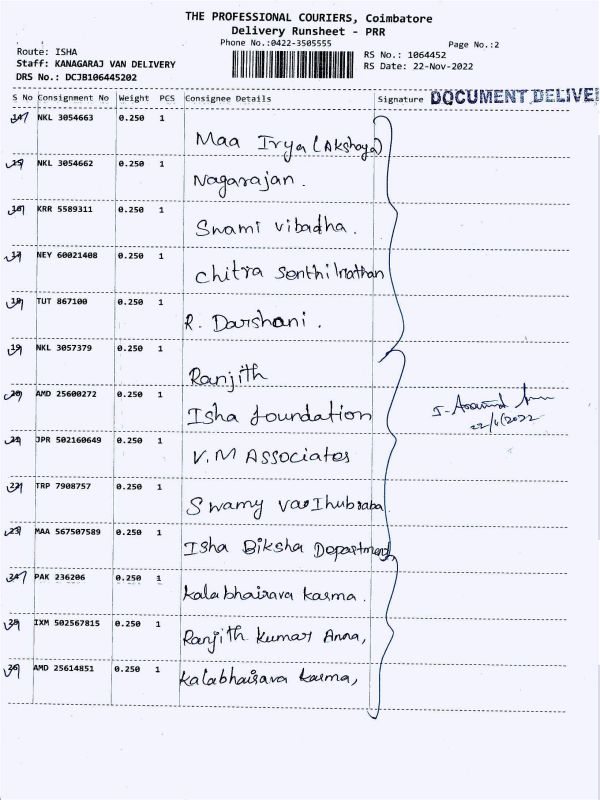 THE PROFESSIONAL COURIERS, Coimbatore
Delivery Runsheet - PRR
Phone No.:0422-3505555
Page No.:2
Route: ISHA
Staff: KANAGARAJ VAN DELIVERY
DRS No.: DCJB106445202
RS No.: 1064452
RS Date: 22-Nov-2022
S No Consignment No Weight PCS Consignee Details Signature DOCUMENT DELIVE
NKL 3054663 0.250 1 Maa Irya (Akshaya)
NKL 3054662 0.250 1 Nagarajan.
KRR 5589311 0.250 1 Swami vibadha.
NEY 60021408 0.250 1 Chitra Senthilnathan
TUT 867100 0.250 1 R. Darshani.
19 NKL 3057379 0.250 1 Ranjith
20 AMD 25600272 0.250 1 Isha foundation
JPR 502160649 0.250 1 V.M ASSOCIATES
TRP 7908757 0.250 1 Swamy
23 MAA 567507589 0.250 1 Isha Biksha Department
PAK 236206 0.250 1 kalabhairava karma.
25 IXM 502567815 0.250 1 Ranjith kumar Anna,
26 AMD 25614851 0.250 1 kalabhairava karma,